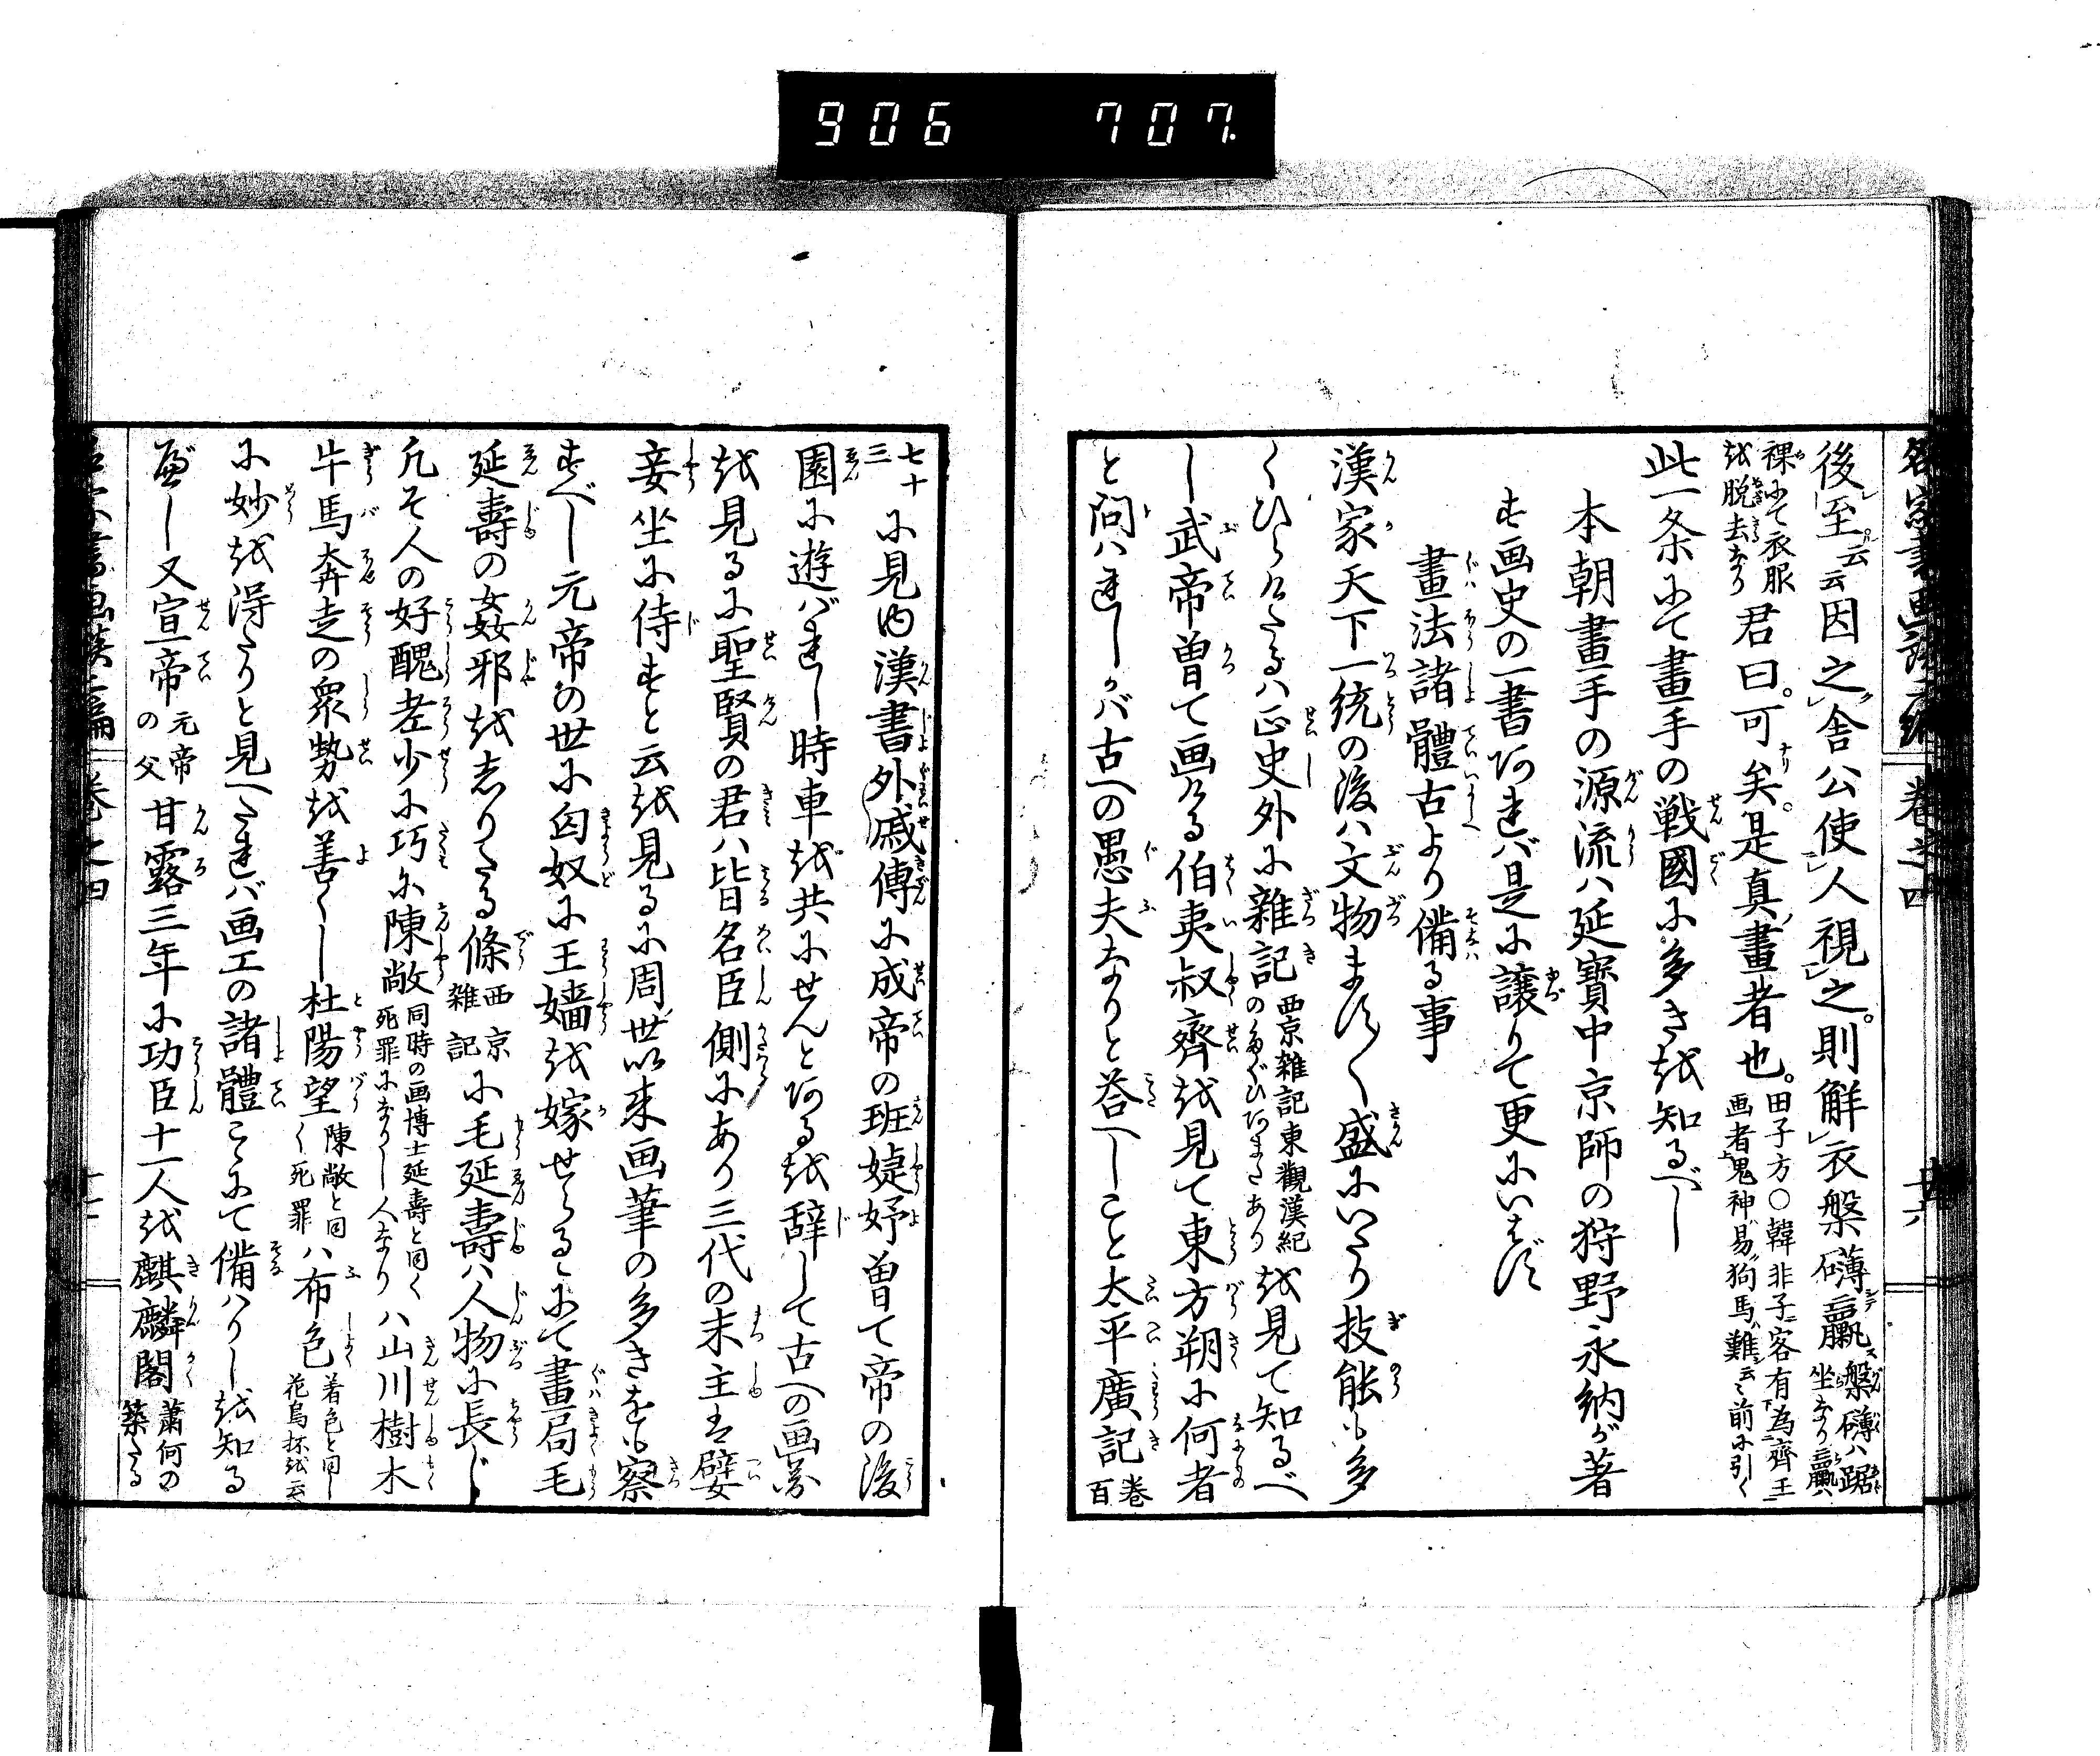 906 707.
後至云云因之舍公使人視之。則解衣槃礴臝槃礴ハ踞坐なり臝ハ
裸にて衣服を脱去なり君曰。可矣。是真畫者也。田子方〇韓非子客有為齊王画者鬼神易狗馬難云々前に引く
此一条にて畫手の戦國に多きを知るべし
本朝畫手の源流ハ延寳中京師の狩野永納が著
す画史の一書あれバ是に譲りて更にいはず
畫法諸體古より備る事
漢家天下一統の後ハ文物ますく盛にいたり技能も多
くひらけたるハ正史外に雜記西京雜記東觀漢紀のたぐひあまたありを見て知るべ
し武帝曽て画ける伯夷叔齊を見て東方朔に何者
と問ハれしかバ古への愚夫なりと答へしこと太平廣記巻百
七十三に見ゆ漢書外戚傳に成帝の班婕妤曽て帝の後
園に遊バれし時車を共にせんとあるを辞して古への画圖
を見るに聖賢の君ハ皆名臣側にあり三代の末主は嬖
妾坐に侍すと云を見るに周世以来画筆の多きをも察
すべし元帝の世に匈奴に王嬙を嫁せらるゝにて畫局毛
延壽の姦邪をしりたる條西京雜記に毛延壽ハ人物に長じ
凡そ人の好醜老少に巧に陳敞同時の画博士延壽と同く死罪になりし人なりハ山川樹木
牛馬奔走の衆勢を善くし杜陽望陳敞と同く死罪ハ布色着色と同し花鳥抔を云
に妙を得たりと見へたれバ画工の諸體こゝにて備ハりしを知る
べし又宣帝元帝の父甘露三年に功臣十一人を麒麟閣蕭何の築たる